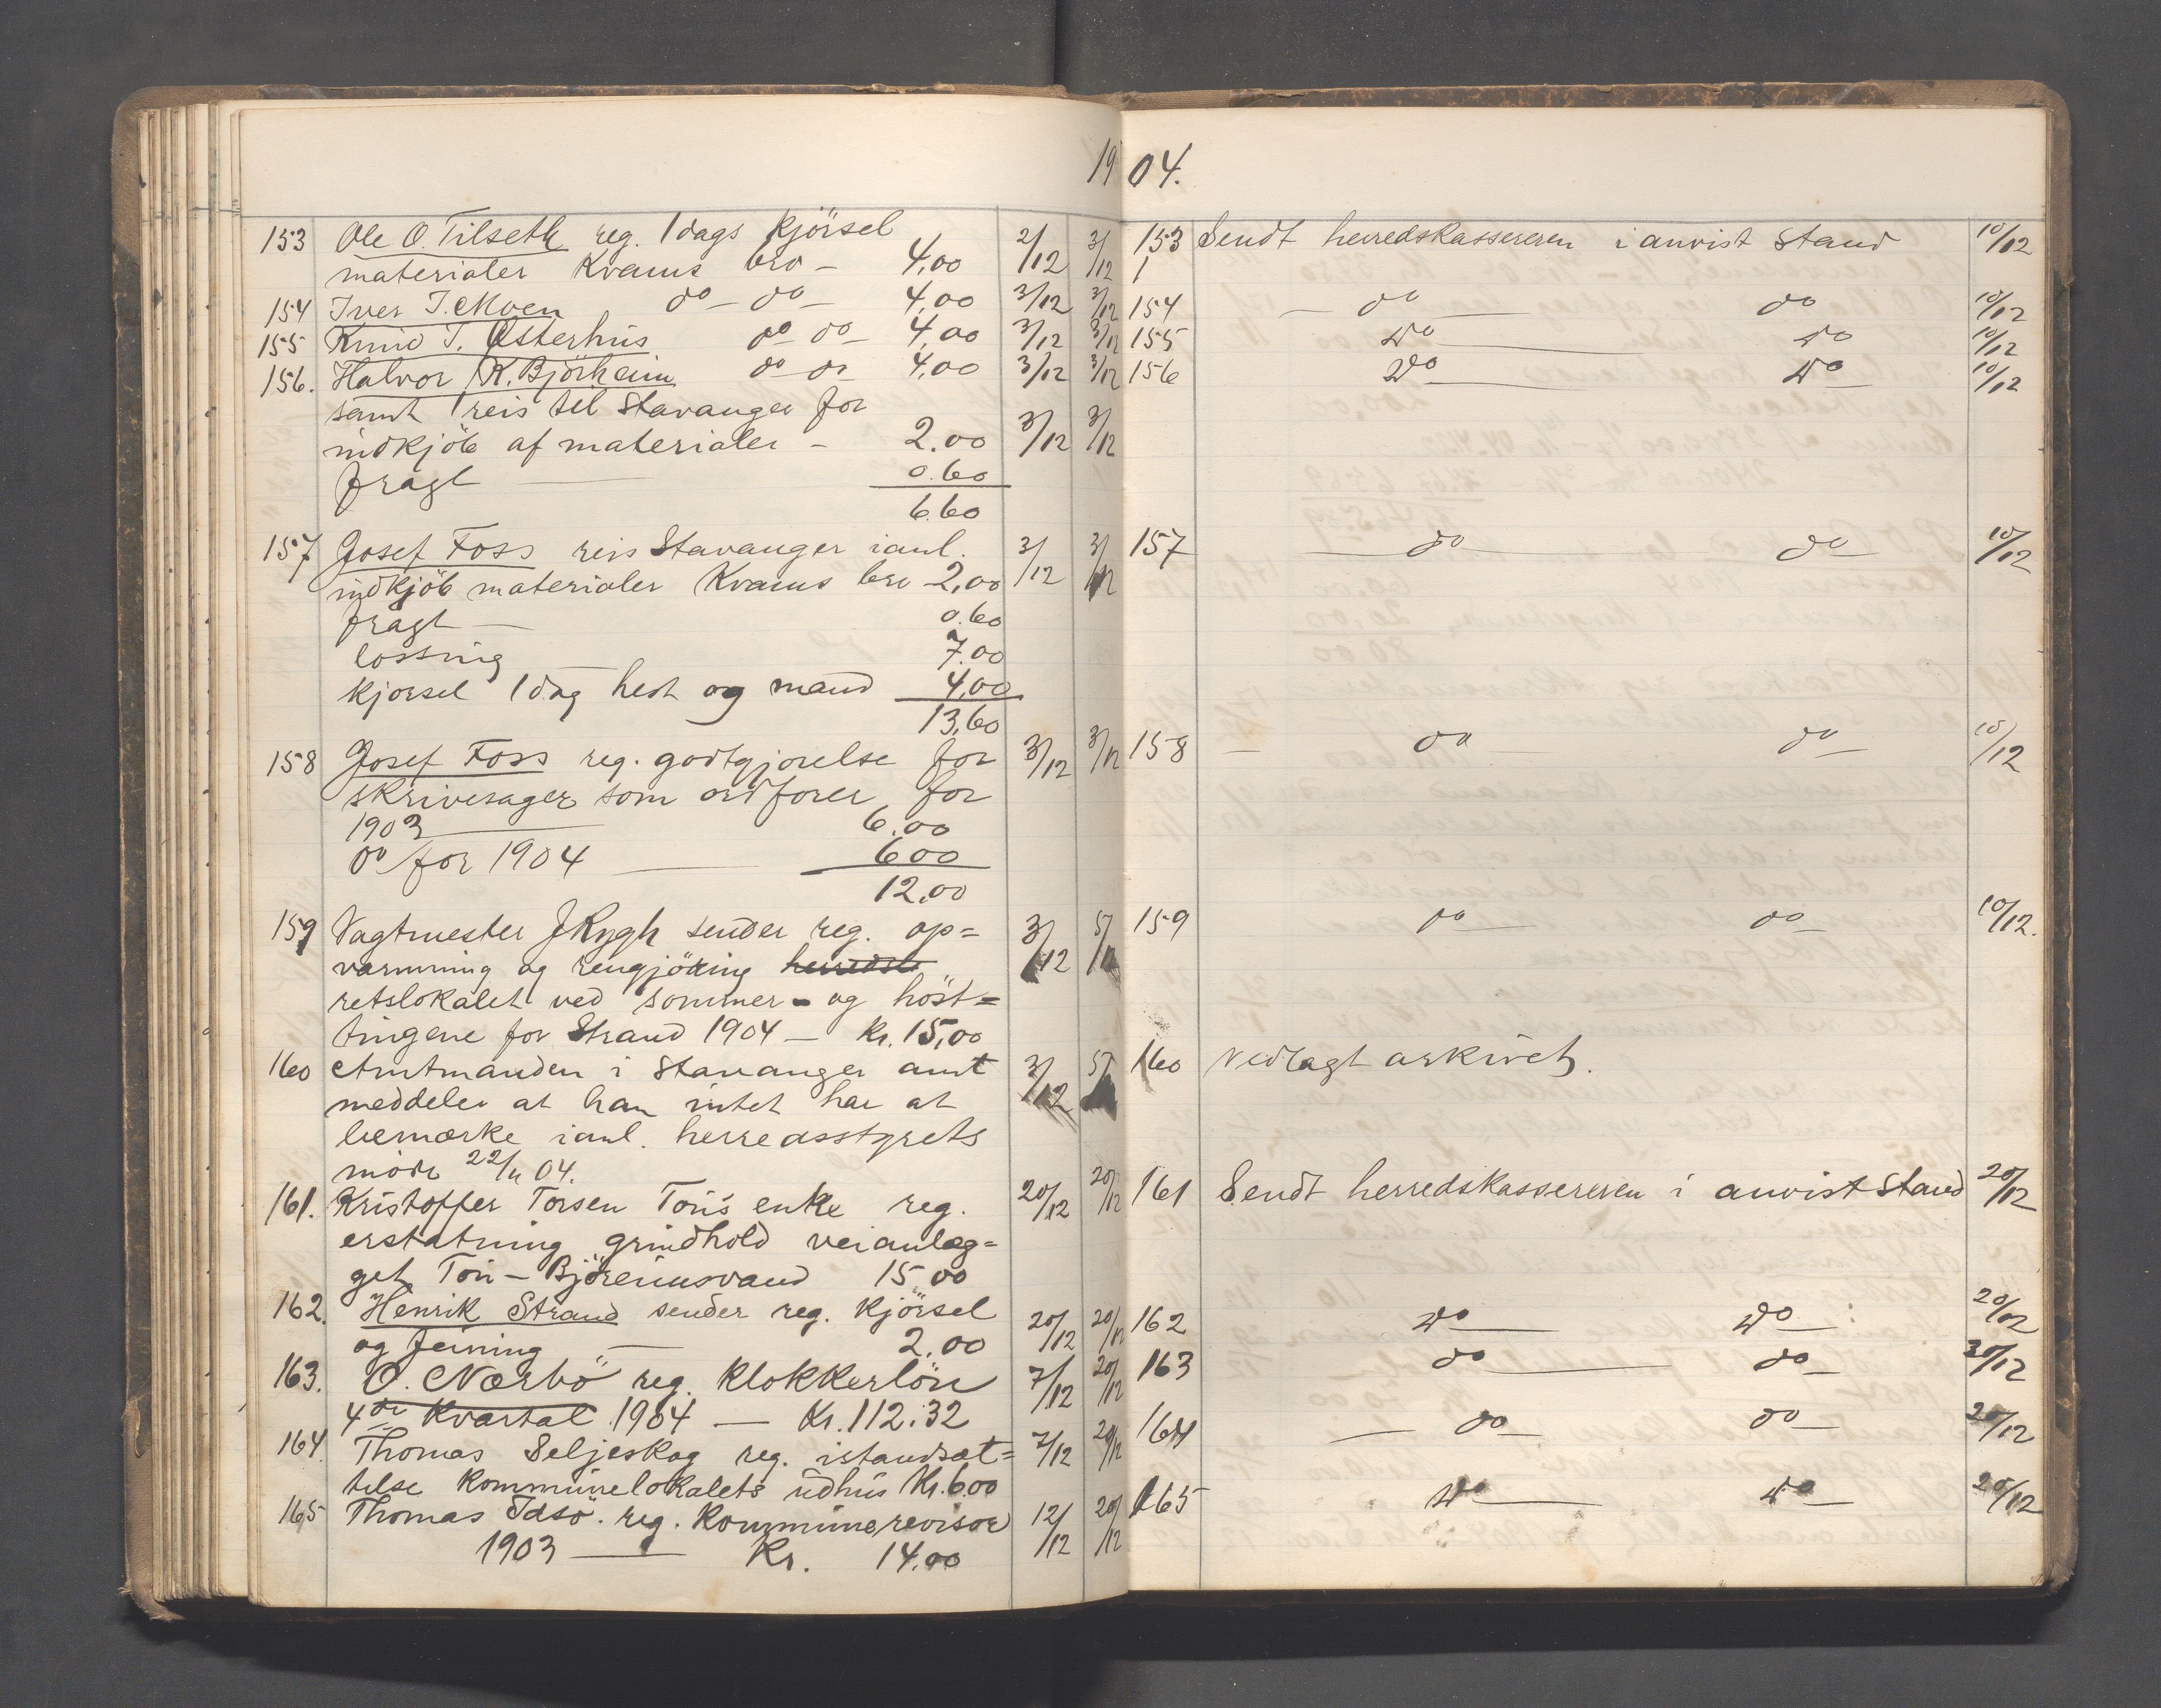 1904.
153 Ole O. Tilseth reg. 1 dags kjörsel
materialer Kvams bro – 4,00 2/12 3/12
154 Iver T. Moen do – do – 4,00 3/12 3/12
155 Knud T. Østerhus do do – 4,00 3/12 3/12
156. Halvor K. Björheim do do 4,00 3/12 3/12
samt 1 reis til Stavanger for
indkjöb af materialer – 2.00 3/12 3/12
fragt — 0.60
6.60
157 Josef Foss reis Stavanger ianl. 3/12 3/12
indkjöb materialer Kvams bro 2,00
fragt — 0.60
lossing — 7.00
kjorsel 1 dag hest og mand 4,00
13,60
158 Josef Foss reg. godtgjorelse for 3/12 3/12
skrivesager som ordforer for
1903 — 6.00
do for 1904 — 6 00
12,00
159 Vagtmester J Rygh sender reg. op= 3/12 5/12
varmning og rengjöring herredst
retslokalet ved sommer - og höst=
tingene for Strand 1904 – Kr. 15,00
160 Amtmanden i Stavanger amt 3/12 5/12
meddeler at han intet har at
bemærke ianl. herredsstyrets
möde 22/11 04.
161. Kristoffer Torsen Tou's enke reg. 20/12 20/12
erstatning grindhold veianlæg=
get Tou – Björeimsvand 15,00
162. Henrik Strand sender reg. kjörsel 20/12 20/12
og feining — 2.00
163. O. Nærbö reg. klokkerlön 7/12 20/12
4de kvartal 1904 — Kr. 112.32
164. Thomas Seljeskog reg. istandsæt= 7/12 20/12
telse kommunelokalets udhus Kr. 6.00
165 Thomas Idsö. reg. Kommunerevisor 12/12 20/12
1903 — Kr. 14.00
153 Sendt herredskassereren i anvist stand 10/12
154 — do — do 10/12
155 do — do 10/12
156 do — do 10/12
157 — do — do — 10/12
158 — do — do — 10/12
159 do — do — 10/12.
160 Vedlagt arkivet.
161 Sendt herredskassereren i anvist stand 20/12
162 do — do — 20/12
163 do — do — 20/12
164 — do — do — 20/12
165 do — do — 20/12